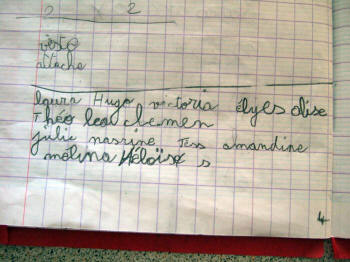 2 x 2
visto
attacha
laura Hugo victoria élyes élise
Théo lea clemen
julie nasrine Tess amandine
mélina Héloïse s
4